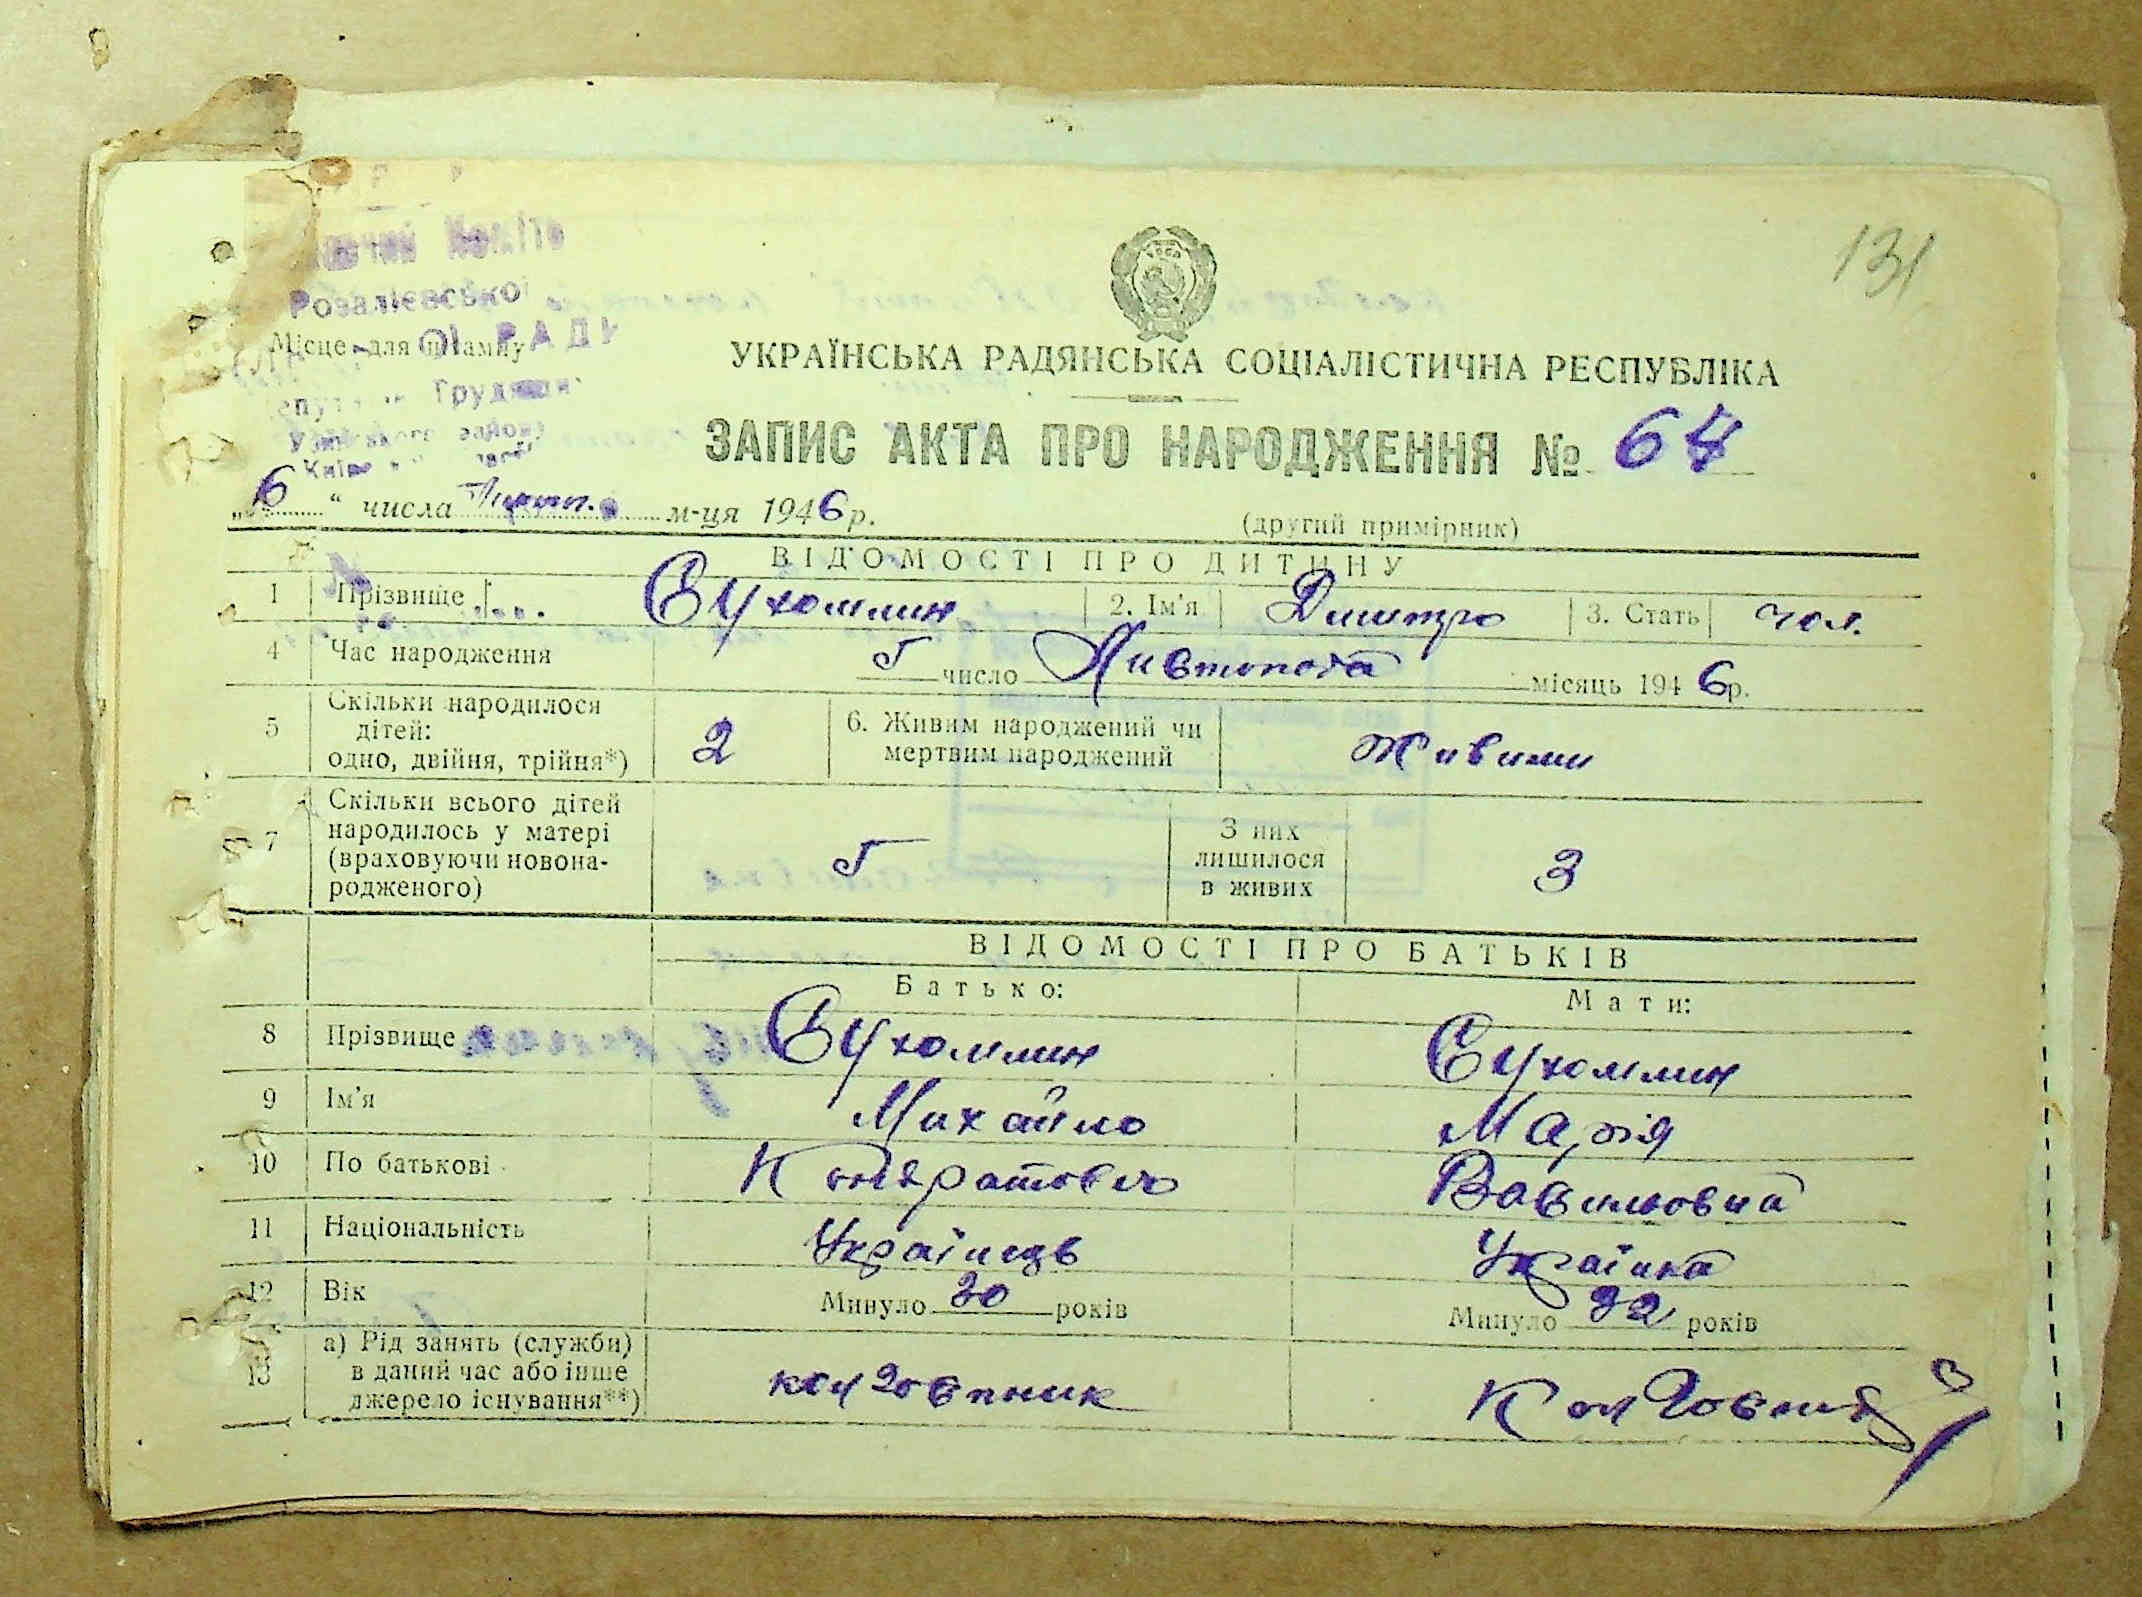 131
Розаліевської
РАДИ
Місце для штампу
УКРАЇНСЬКА РАДЯНСЬКА СОЦІАЛІСТИЧНА РЕСПУБЛІКА
ЗАПИС АКТА ПРО НАРОДЖЕННЯ №
„6“ числа м-ця 1946р.
(другий примірник)
ВІДОМОСТІ ПРО ДИТИНУ
1 Прізвище Сухомлин 2. Ім'я Дмитро 3. Стать чол.
4 Час народження 5 число Листопада місяць 1946р.
5 Скільки народилося дітей: одно, двійня, трійня*) 2 6. Живим народжений чи мертвим народжений живими
7 Скільки всього дітей народилось у матері (враховуючи новонародженого) 5 З них лишилося в живих 3
ВІДОМОСТІ ПРО БАТЬКІВ
Батько: Мати:
8 Прізвище Сухомлин Сухомлин
9 Ім'я Михайло Марія
10 По батькові Кондратович
11 Національність Українець Українка
12 Вік Минуло 30 років Минуло 32 років
13 а) Рід занять (служби) в даний час або інше джерело існування**) колгоспник